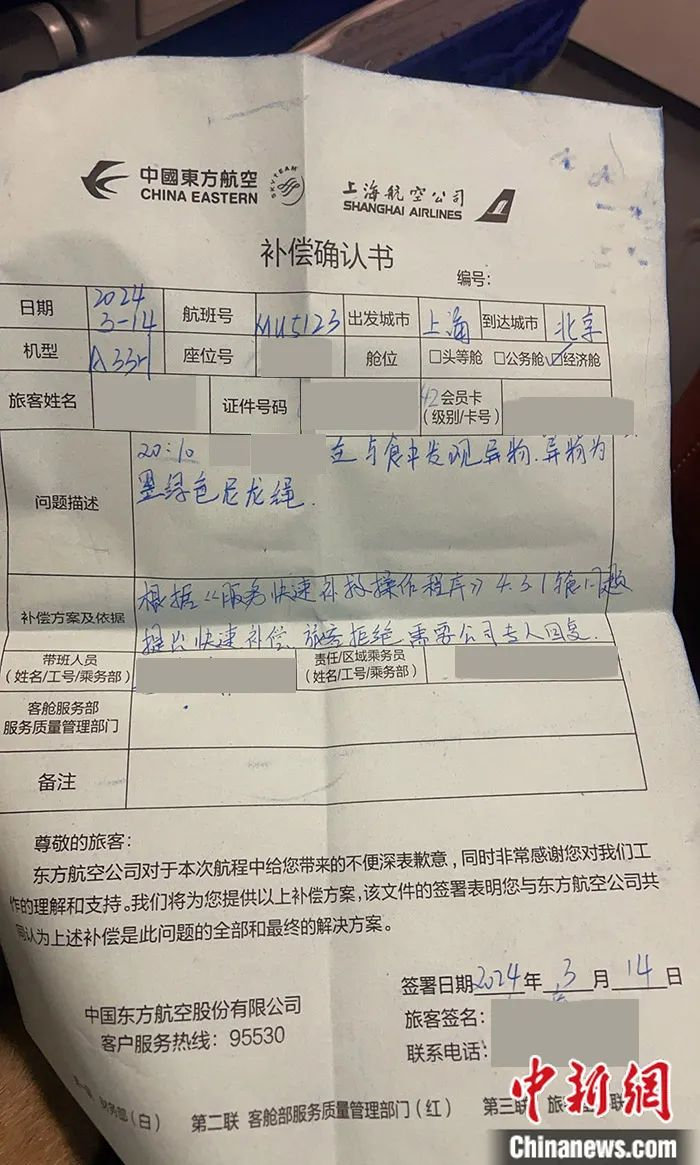 中國東方航空
CHINA EASTERN
SKYTEAM
上海航空公司
SHANGHAI AIRLINES
补偿确认书
编号:
日期 2024 3-14 航班号 MU5123 出发城市 上海 到达城市 北京
机型 A33 座位号 舱位 □头等舱 □公务舱 ☑经济舱
旅客姓名 证件号码 42 会员卡
(级别/卡号)
问题描述 20:10 在与食中发现异物.异物为
墨绿色尼龙绳.
补偿方案及依据 根据《服务快速补救操作程序》4.3.1 问题
提出快速补偿、旅客拒绝.需要公司专人回复.
带班人员
(姓名/工号/乘务部)
责任/区域乘务员
(姓名/工号/乘务部)
客舱服务部
服务质量管理部门
备注
尊敬的旅客:
东方航空公司对于本次航程中给您带来的不便深表歉意,同时非常感谢您对我们工
作的理解和支持。我们将为您提供以上补偿方案,该文件的签署表明您与东方航空公司共
同认为上述补偿是此问题的全部和最终的解决方案。
签署日期2024年3月14日
中国东方航空股份有限公司
旅客签名:
客户服务热线: 95530
联系电话:
财务部(白) 第二联 客舱部服务质量管理部门(红) 第三联 旅
中新网
Chinanews.com